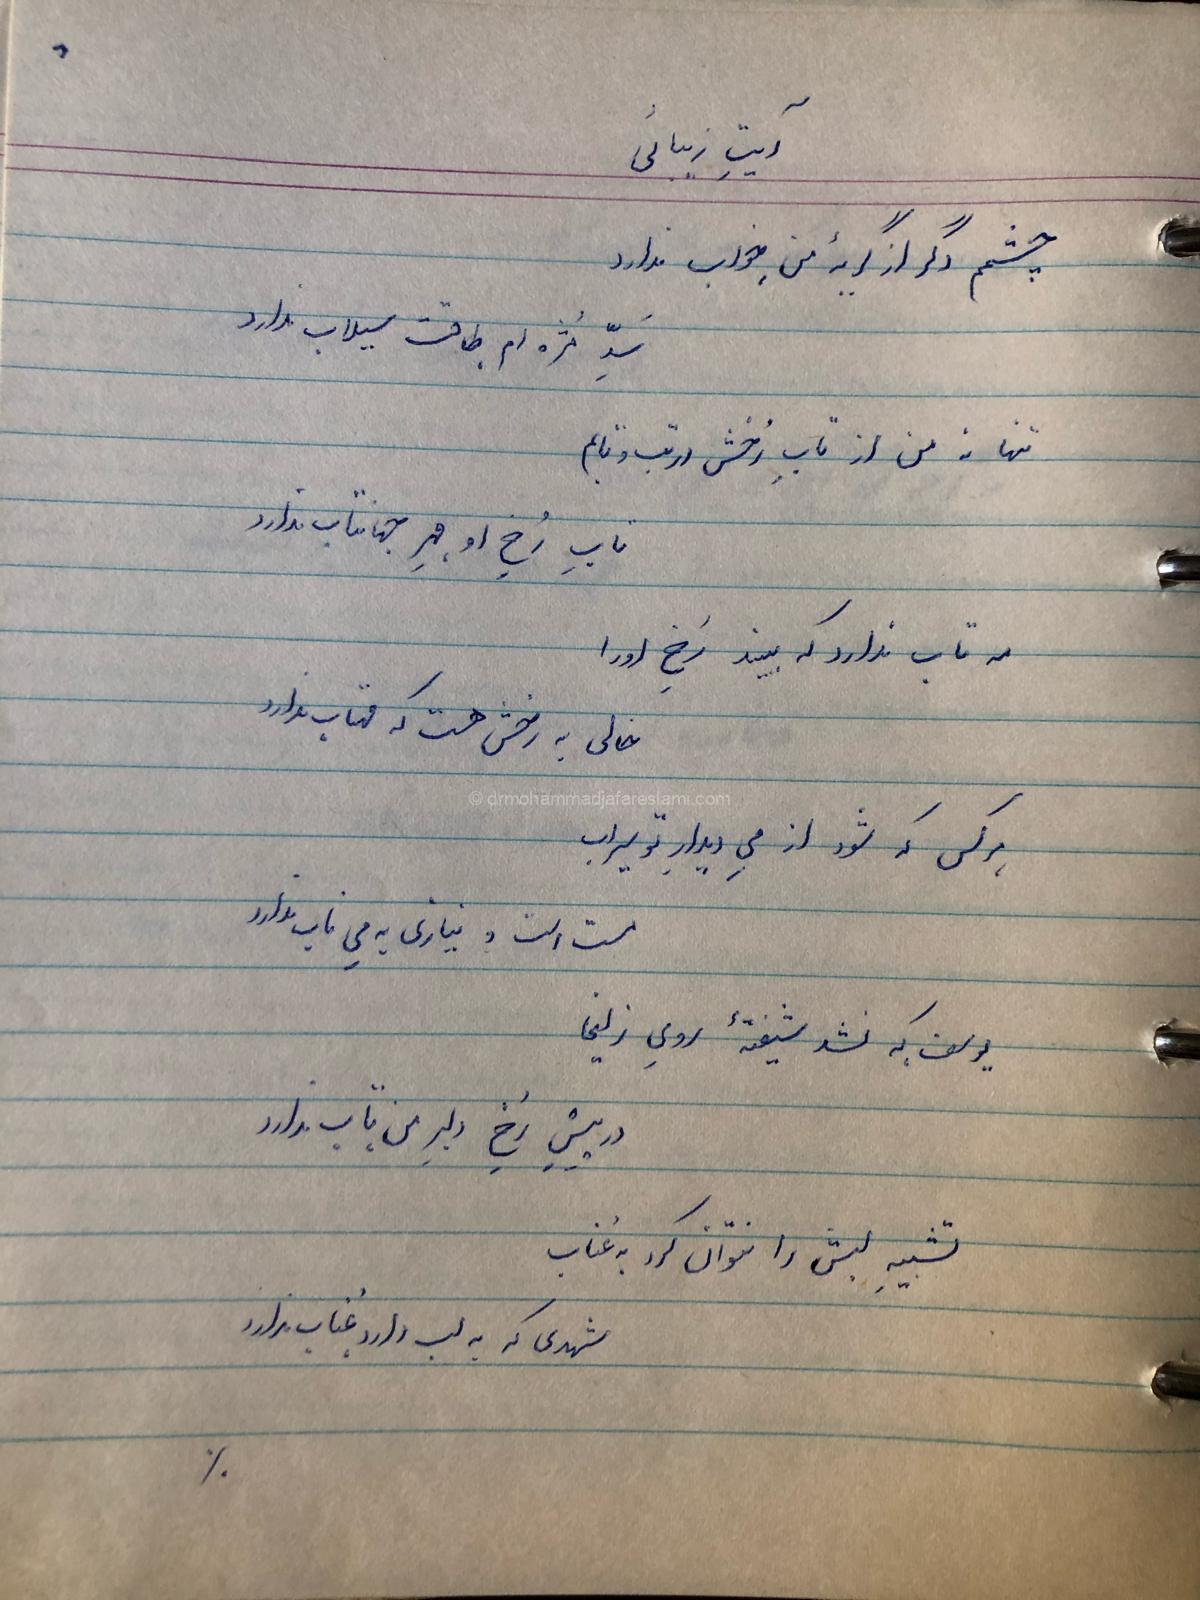 آیتِ زیبائی
چشمم دگر از گریهٔ من خواب ندارد
سَدِّ مُژه ام طاقت سیلاب ندارد
تنها نه من از تابِ رُخش در تب و تابم
تابِ رُخِ او مِهرِ جهانتاب ندارد
مه تاب ندارد که ببیند رُخِ او را
خالی به رخش هست که مهتاب ندارد
© drmohammadjafareslami.com
هر کس که شود از میِ دیدارِ تو سیراب
مست است و نیازی به میِ ناب ندارد
یوسف که نشد شیفتهٔ رویِ زلیخا
در پیشِ رُخِ دلبرِ من تاب ندارد
تشبیهِ لبش را نتوان کرد به عُناب
شهدی که به لب دارد عُناب ندارد
٪